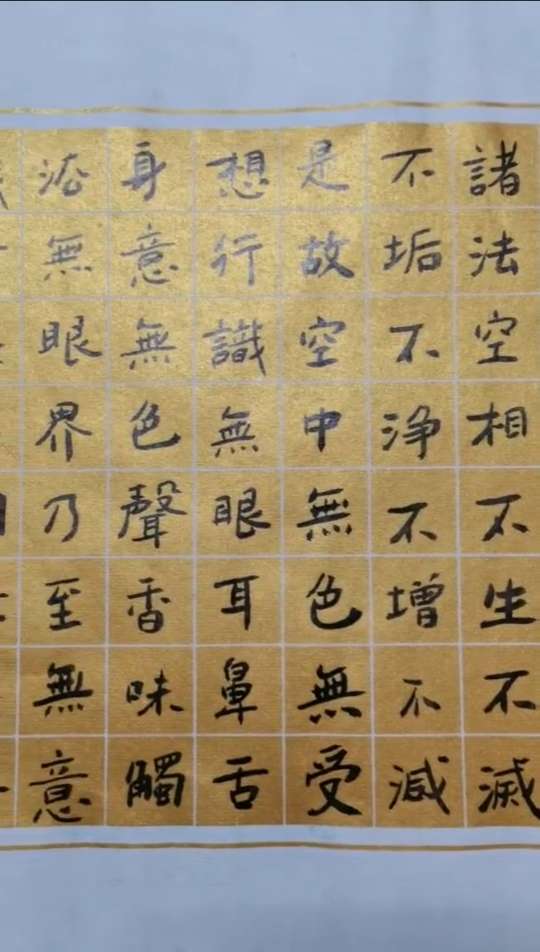 諸法空相不生不滅
不垢不淨不增不減
是故空中無色無受
想行識無眼耳鼻舌
身意無色聲香味觸
法無眼界乃至無意